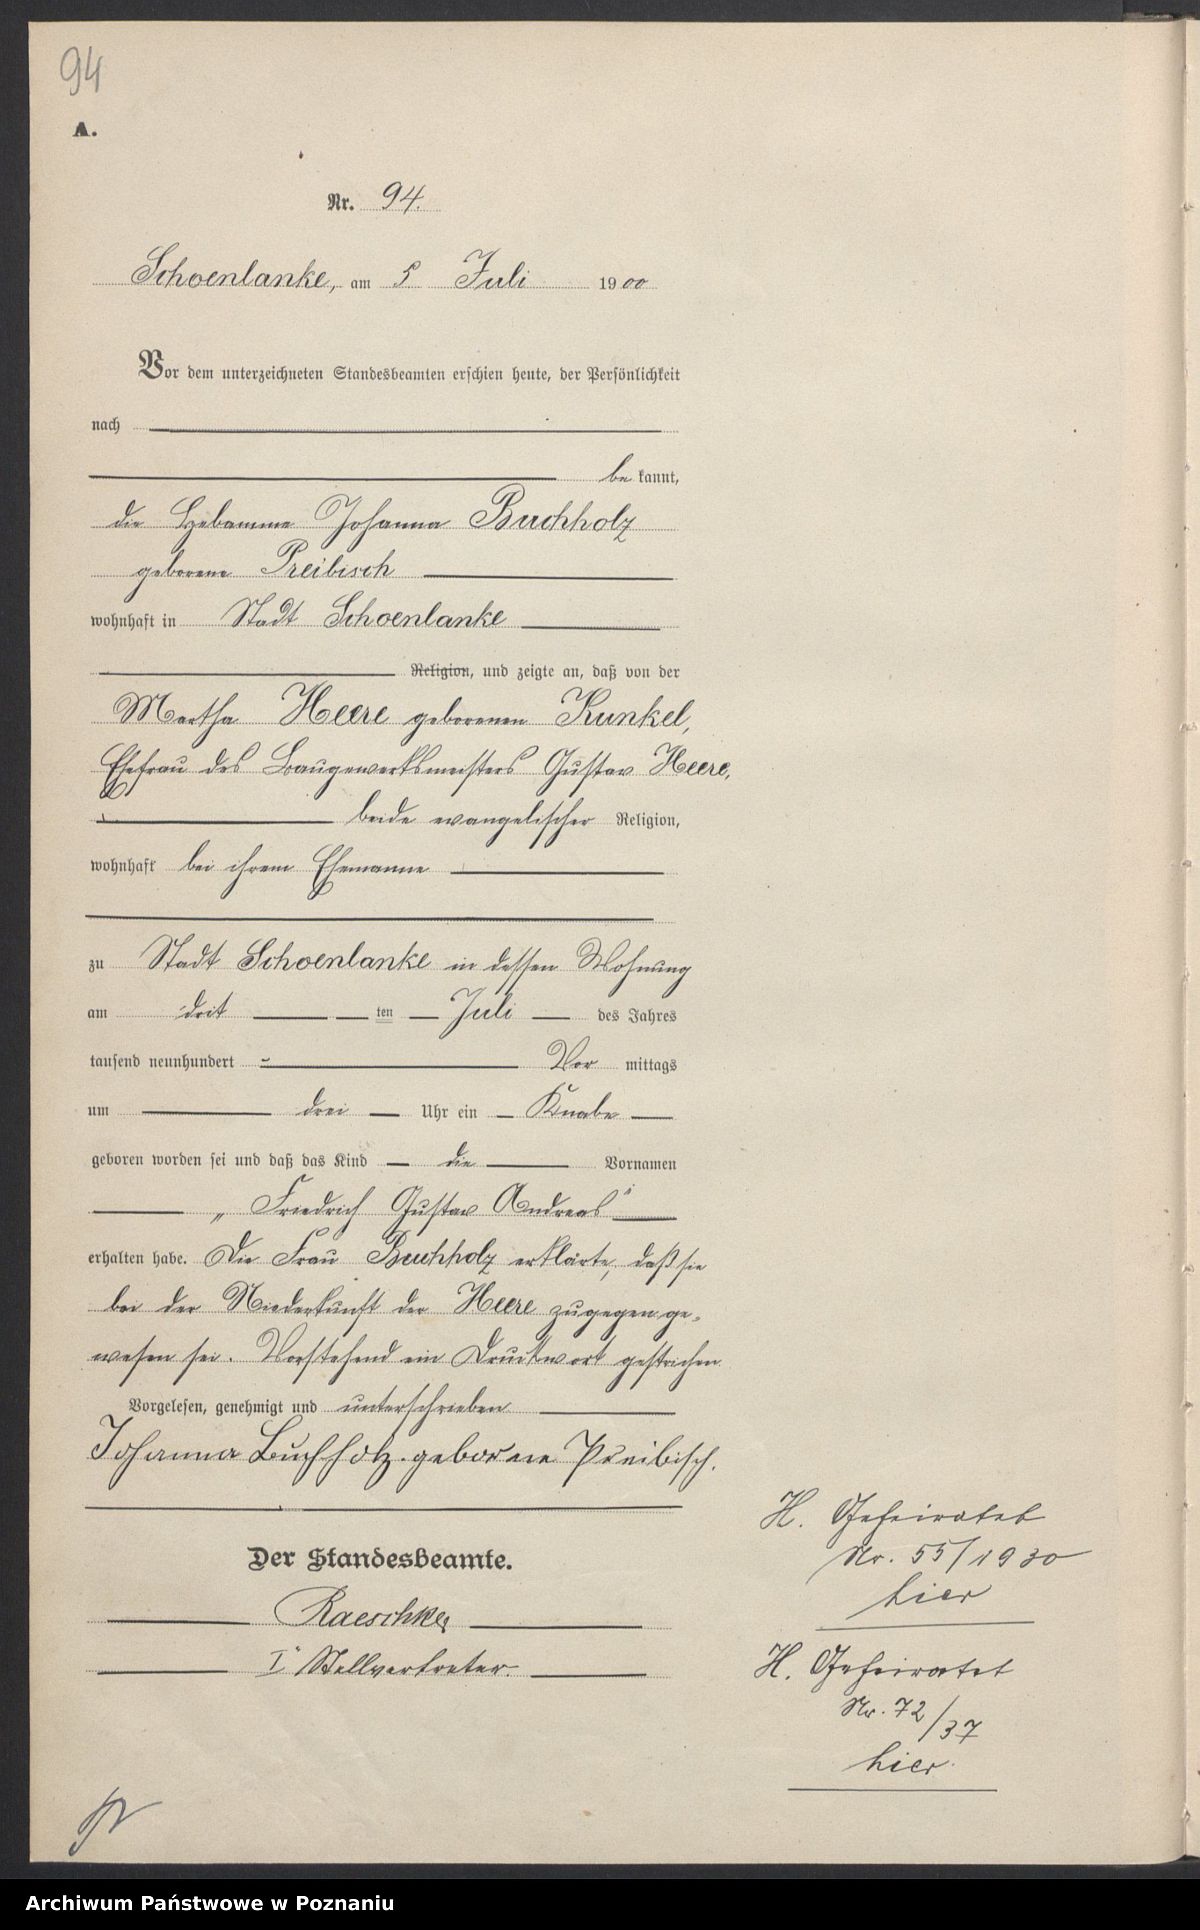 94
A.
Nr. 94.
Schoenlanke, am 5 Juli 1900
Vor dem unterzeichneten Standesbeamten erschien heute, der Persönlichkeit
nach
be kannt,
die Hebamme Johanna Buchholz
geborene Preibisch
wohnhaft in Stadt Schoenlanke
Religion, und zeigte an, daß von der
Martha Heere geborenen Kunkel,
Ehefrau des Baugewerksmeisters Gustav Heere,
beide evangelischer Religion,
wohnhaft bei ihrem Ehemanne
zu Stadt Schoenlanke in dessen Wohnung
am drit ten Juli des Jahres
tausend neunhundert Vor mittags
um drei Uhr ein Knabe
geboren worden sei und daß das Kind die Vornamen
„Friedrich Gustav Andreas"
erhalten habe. Die Frau Buchholz erklärte, daß sie
bei der Niederkunft der Heere zugegen ge-
wesen sei. Vorstehend ein Druckwort gestrichen.
Vorgelesen, genehmigt und unterschrieben
Johanna Buchholz geborne Preibisch.
Der Standesbeamte.
Raeschke
I Stellvertreter.
H. Geheiratet
Nr. 55/1930
hier
H. Geheiratet
Nr. 72/37
hier.
Archiwum Państwowe w Poznaniu